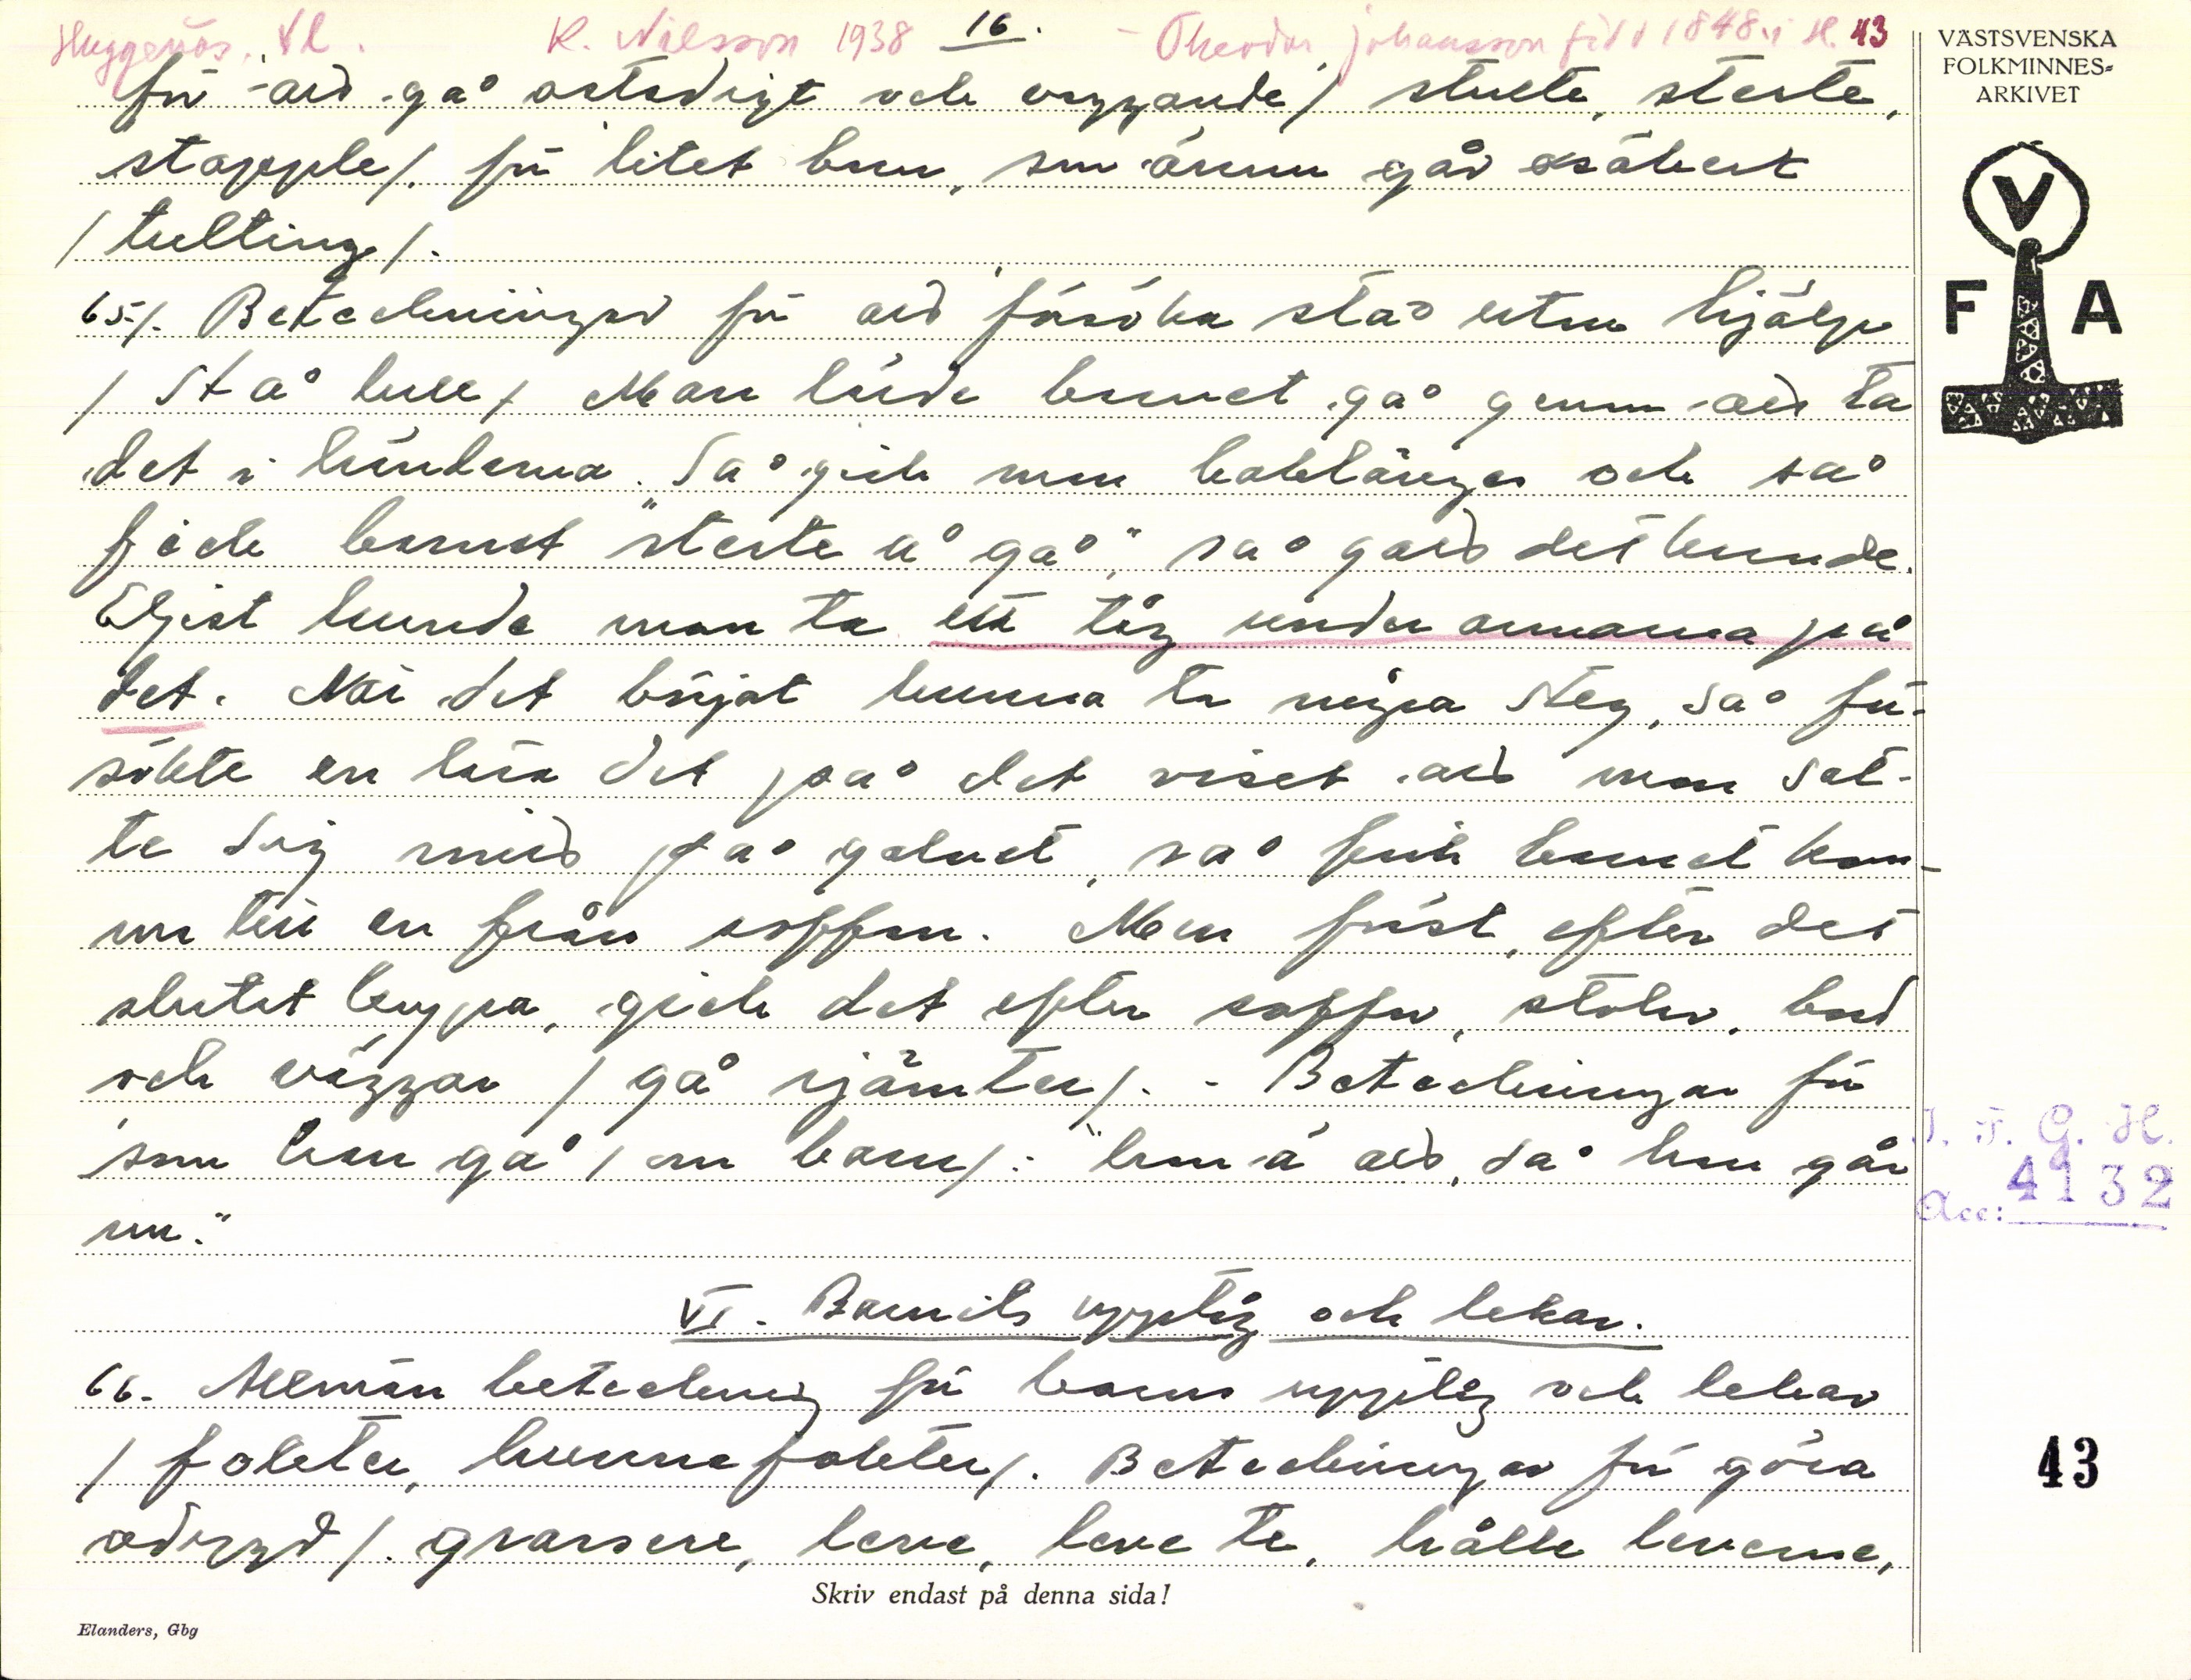 Huggenäs. Vl. K. Nilsson 1938 16. - Theodor Johansson född 1848 i H. 43
för att gå ostadigt och vaggande / stulte, sterte,
stapple/. för litet barn, som ännu går osäkert
/ tulting /.
65/. Beteckningar för att försöka stå utan hjälp
/ stå kull / Man lärde barnet gå genom att ta
det i händerna. Så gick man baklänges och så
fick barnet "sterte å gå", så gott det kunde.
Eljest kunde man ta ett tåg under armarna på
det. När det börjat kunna ta några steg, så för-
sökte en lära det på det viset att man sat-
te sig mitt på golvet, så fick barnet kom-
ma till en från soffan. Men först, efter det
slutat krypa, gick det efter soffor, stolar, bord
och väggar / gå sjämter/. - Beteckningar för
som kan gå / om barn/: "han ä att, då han går
om."
VI. Barnets upptåg och lekar.
66. Allmän beteckning för barns upptåg och lekar
/ fakter, kunna fakter/. Beteckningar för göra
odygd /. grassere, leve, leve te, hålle leverne,
Skriv endast på denna sida!
Elanders, Gbg
VÄSTSVENSKA
FOLKMINNES=
ARKIVET
V
F A
I. F. G. H.
Acc: 4132
43